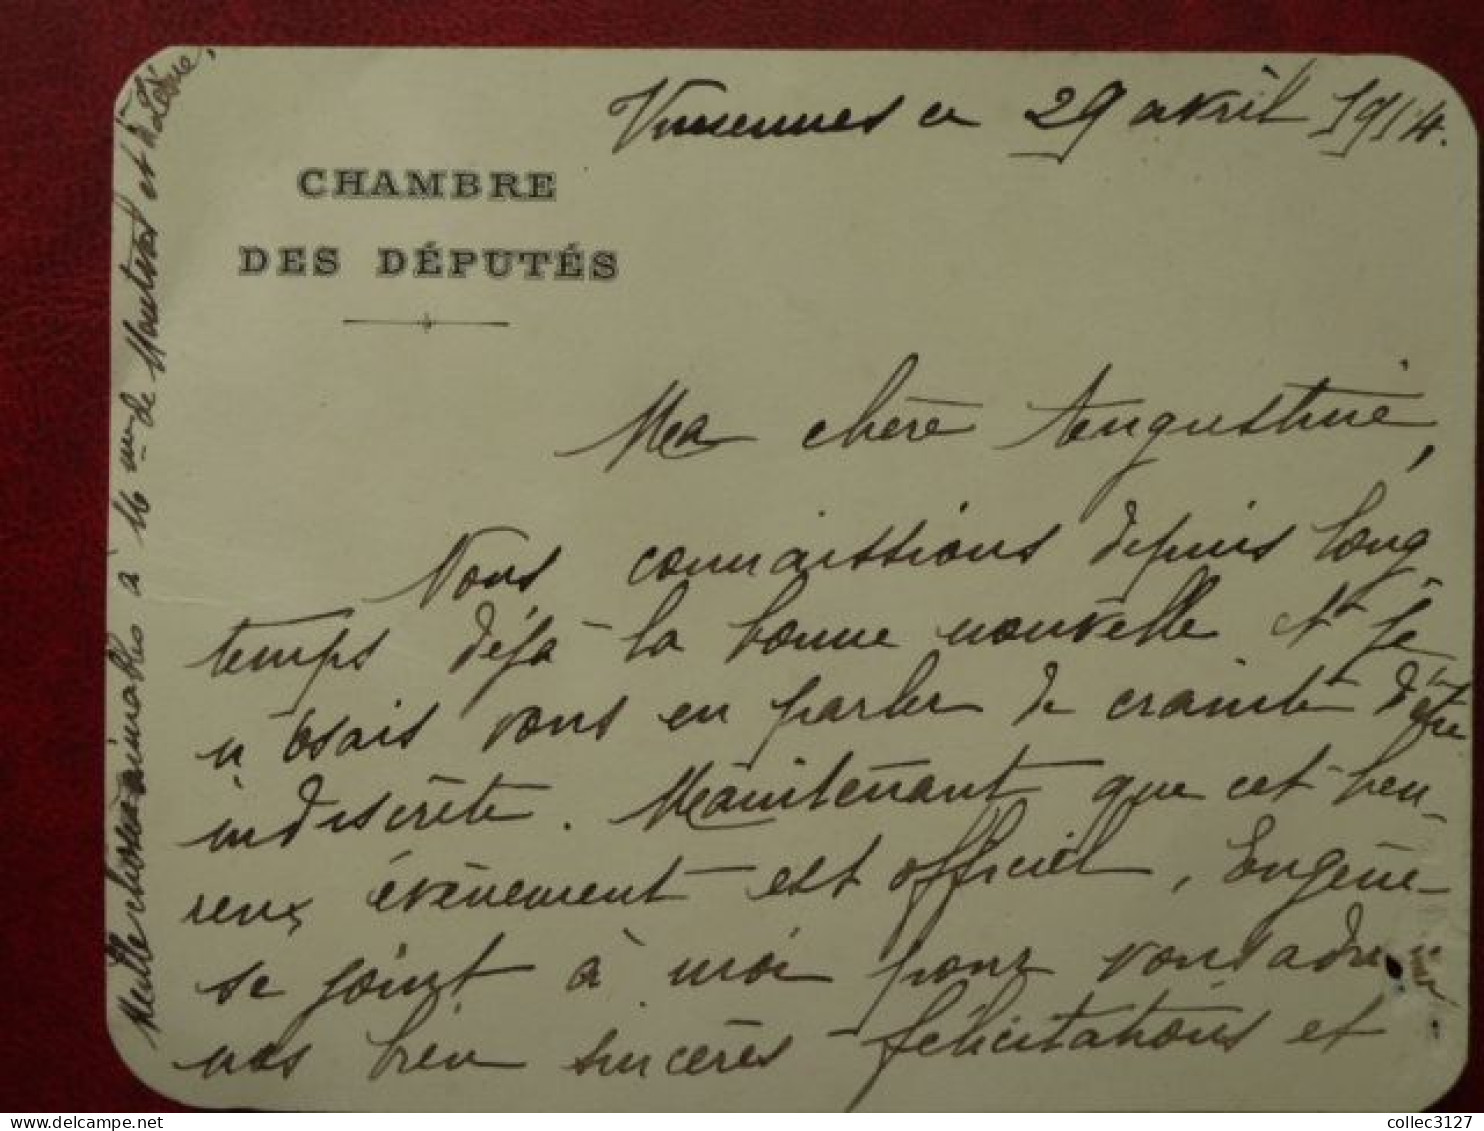 Vincennes ce 29 avril 1914.
CHAMBRE
DES DÉPUTÉS
Ma chère Augustine,
Nous connaissions depuis long-
temps déjà la bonne nouvelle et je
n'osais vous en parler de crainte d'être
indiscrète. Maintenant que cet heu-
reux évènement est officiel, Eugène
se joint à moi pour vous adresser
nos bien sincères félicitations et
Mille choses aimables à Mme de et à
collec3127